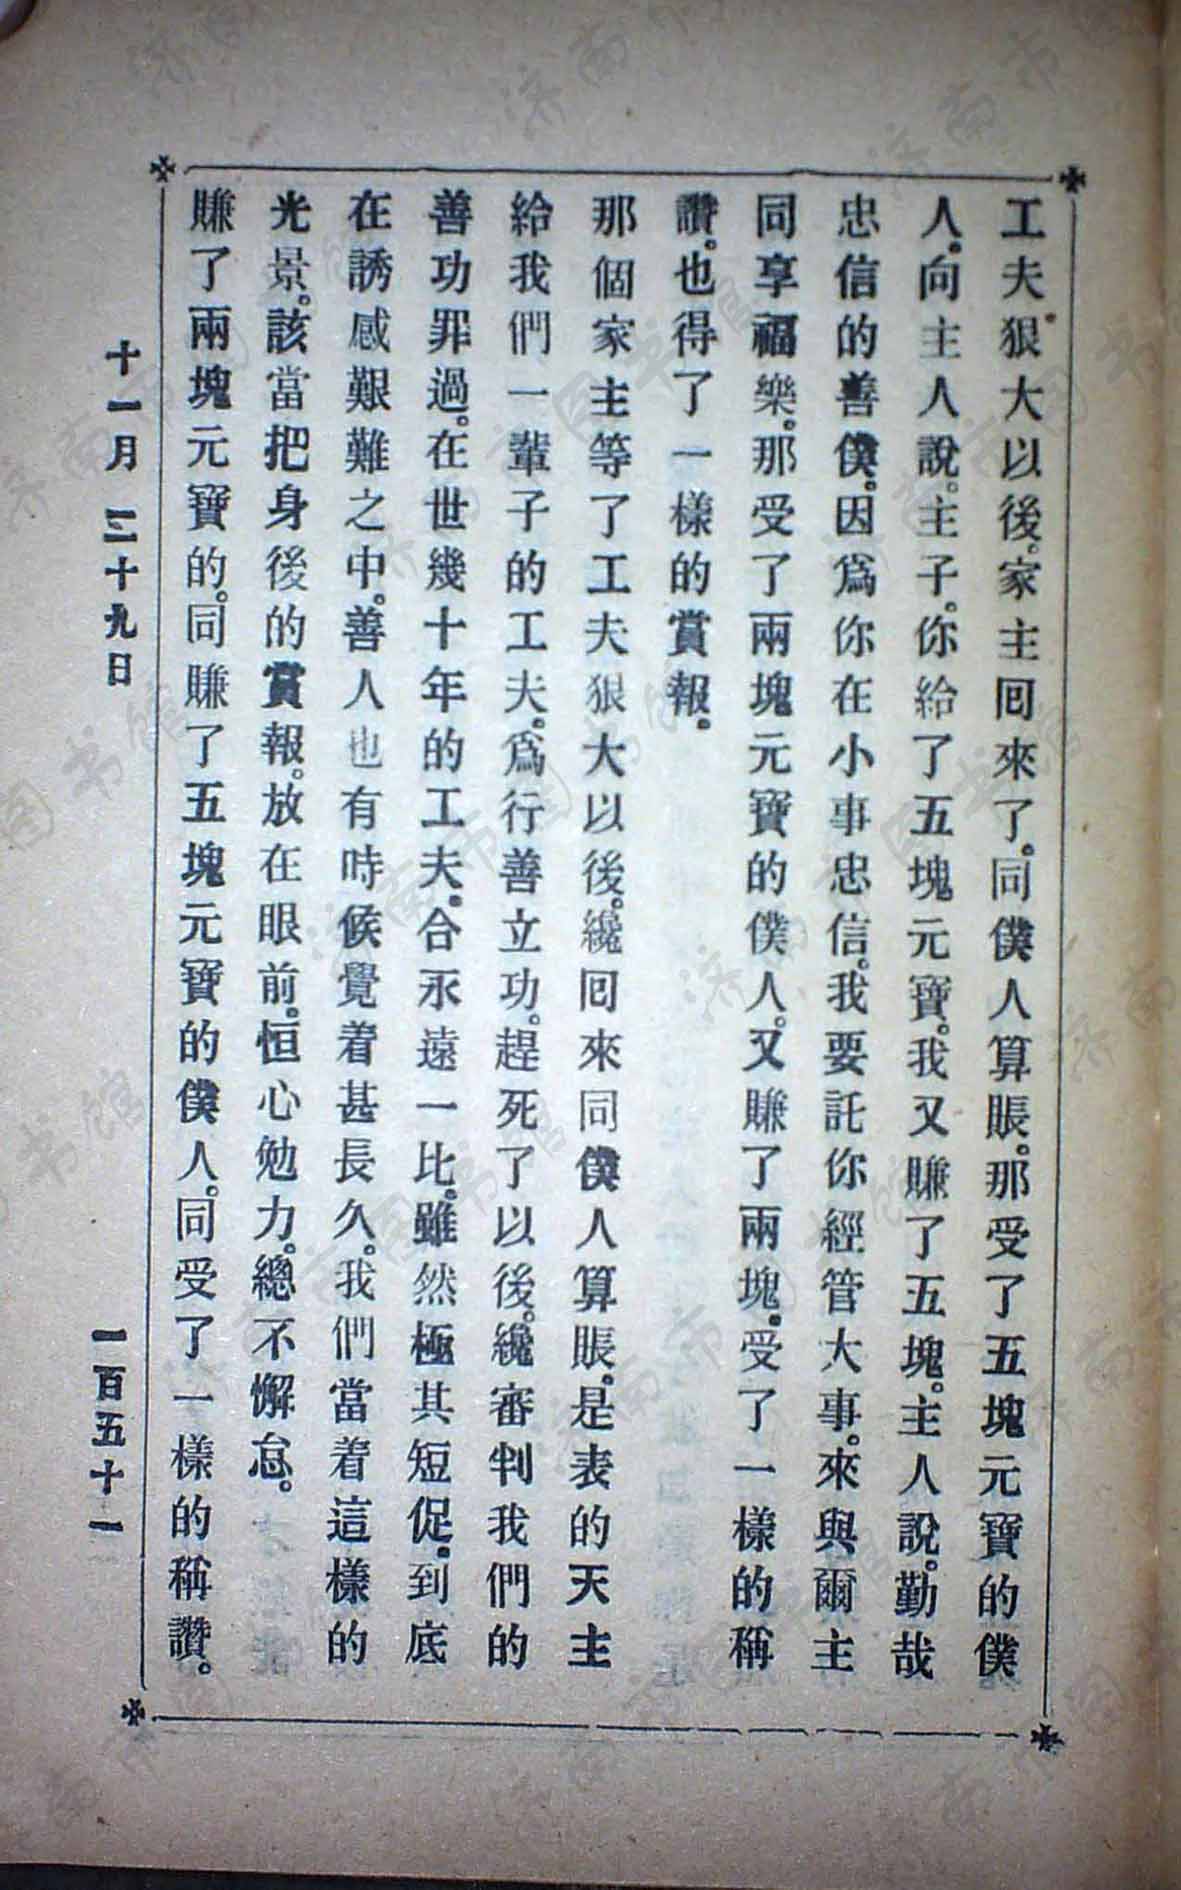 工夫狠大以後。家主囘來了。同僕人算賬。那受了五塊元寶的僕
人。向主人說。主子。你給了五塊元寶。我又賺了五塊。主人說。勤哉
忠信的善僕。因爲你在小事忠信。我要託你經管大事。來與爾主
同享福樂。那受了兩塊元寶的僕人。又賺了兩塊。受了一樣的稱
讚。也得了一樣的賞報。
那個家主等了工夫狠大以後。纔囘來同僕人算賬。是表的天主
給我們一輩子的工夫。爲行善立功。趕死了以後。纔審判我們的
善功罪過。在世幾十年的工夫。合永遠一比。雖然極其短促。到底
在誘感艱難之中。善人也有時候覺着甚長久。我們當着這樣的
光景。該當把身後的賞報。放在眼前。恒心勉力。總不懈怠。
賺了兩塊元寶的。同賺了五塊元寶的僕人。同受了一樣的稱讚。
十一月 二十九日
一百五十一
濟南市图书馆